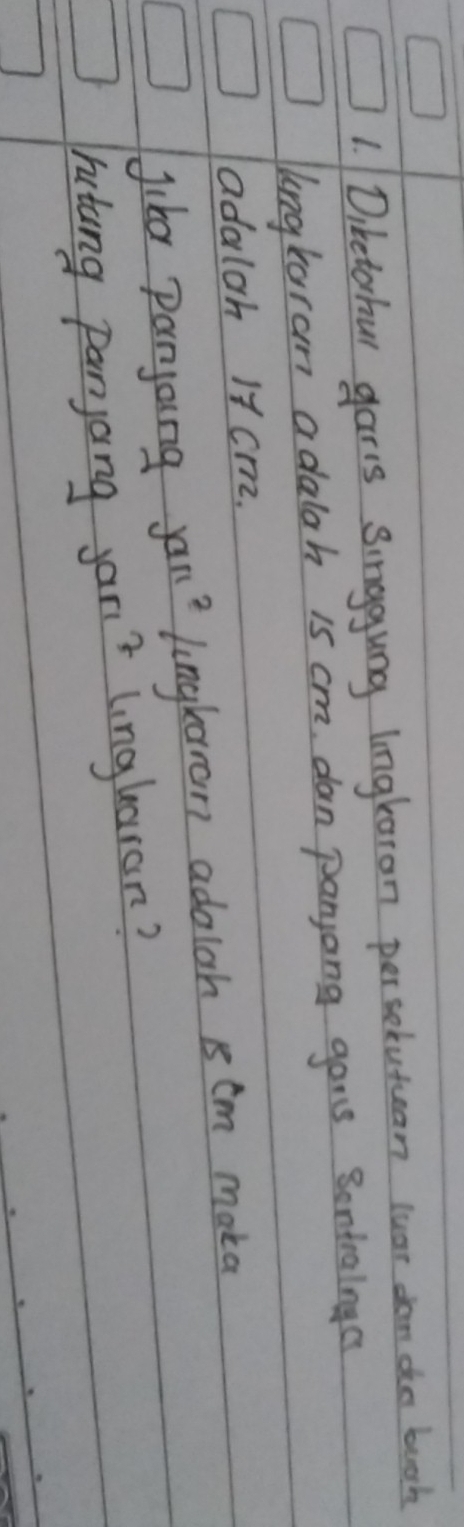 1. Diketahui garis singgung lingkaran persekutuan luar dan dua buah
lingkaran adalah 15 cm. dan panjang garis sentralnya
adalah 17 cm.
Jika panjang jari² lingkaran adalah cm maka
hitung panjang jari² lingkaran?